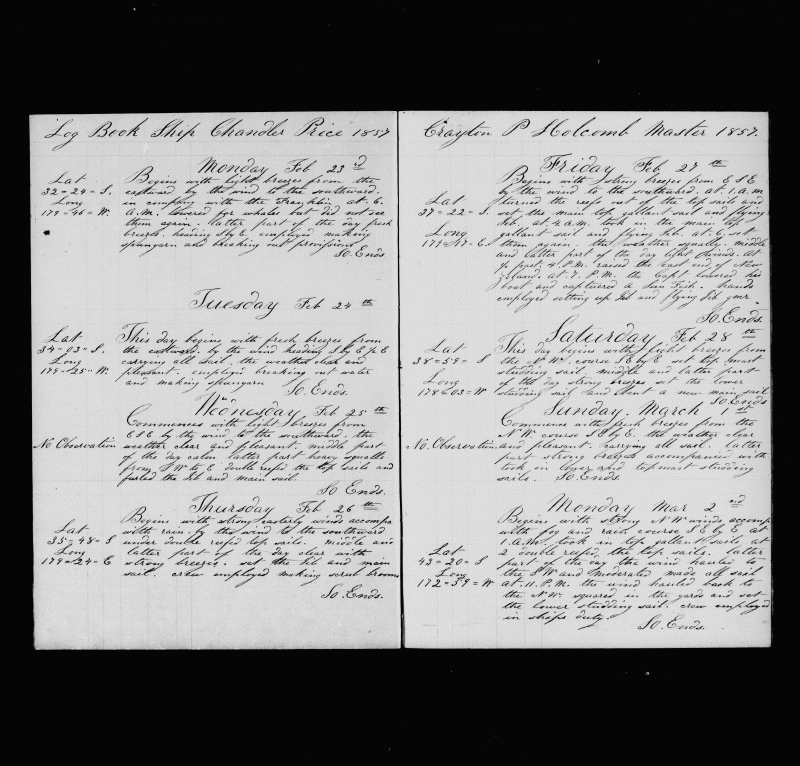 Log Book Ship Chandler Price 1857
Monday Feb 23rd
Lat
32 = 24 = S.
Long
179 = 46 = W.
Begins with light breezes from the
eastward by the wind to the southward.
in company with the Franklin at. 6.
A.M. lowered for whales but did not see
them again. latter part of the day fresh
breezes. heading S by E. employed making
spunyarn and breaking out provisions
So. Ends
Tuesday Feb 24th
Lat
34 = 03 = S.
Long
179 = 25 = W.
This day begins with fresh breezes from
the eastward. by the wind heading S by E ½ E
carrying all sail. the weather clear and
pleasant. employd breaking out water
and making spunyarn
So. Ends.
Wednesday Feb 25th
No Observation
Commences with light breezes from
E S E by the wind to the southward. the
weather clear and pleasant. middle part
of the day calm latter part heavy squalls
from S W to E. double reefed the top sails and
furled the Jib and main sail
So Ends.
Thursday Feb 26th
Lat
35 = 48 = S
Long
179 = 24 = E
Begins with strong easterly winds accompa
with rain. by the wind to the southward
under double reefd top sails. middle and
latter part of the day clear with
strong breezes. set the Jib and main
sail. crew employed making scrub brooms
So. Ends.
Crayton P Holcomb Master 1857.
Friday Feb 27th
Lat
37 = 22 = S.
Long
179 = 17 = E
Begins with strong breezes from E S E
by the wind to the southward. at. 1. a.m
turned the reefs out of the top sails and
set the main top gallant sail and flying
Jib. at. 4. a.m. took in the main top
gallant sail and flying Jib. at. 6. set
them again. the weather squally. middle
and latter part of the day light winds. at
½ past. 4. P.M. raised the east end of New
Zeland. at. 7. P.M. the Capt lowered his
boat and captured a Sun Fish. hands
employed setting up Jib and flying Jib gear.
So. Ends.
Saturday Feb 28th
Lat
38 = 59 = S
Long
178 = 03 = W
This day begins with light breezes from
the N W. course S E by E set top mast
studding sail. middle and latter part
of the day strong breezes set the lower
studding sail and bent a new main sail
So. Ends
Sunday. March 1st
No. Observation.
Commence with fresh breezes from the
N W. course S E by E. the weather clear
and pleasant. carrying all sail. latter
part strong breezes accompanied with
took in lower and topmast studding
sails. So. Ends.
Monday Mar 2nd
Lat
43 = 20 = S
Long
172 = 59 = W
Begins with strong N W winds accomp
with fog and rain course S E by E at
1. A.M. took in top gallant sails at
2. double reefed the top sails. latter
part of the day the wind hauled to
the S W and moderated made all sail
at. 11. P.M. the wind hauled back to
the N W. squared in the yards and set
the lower studding sail. crew employed
in ships duty.
So. Ends.